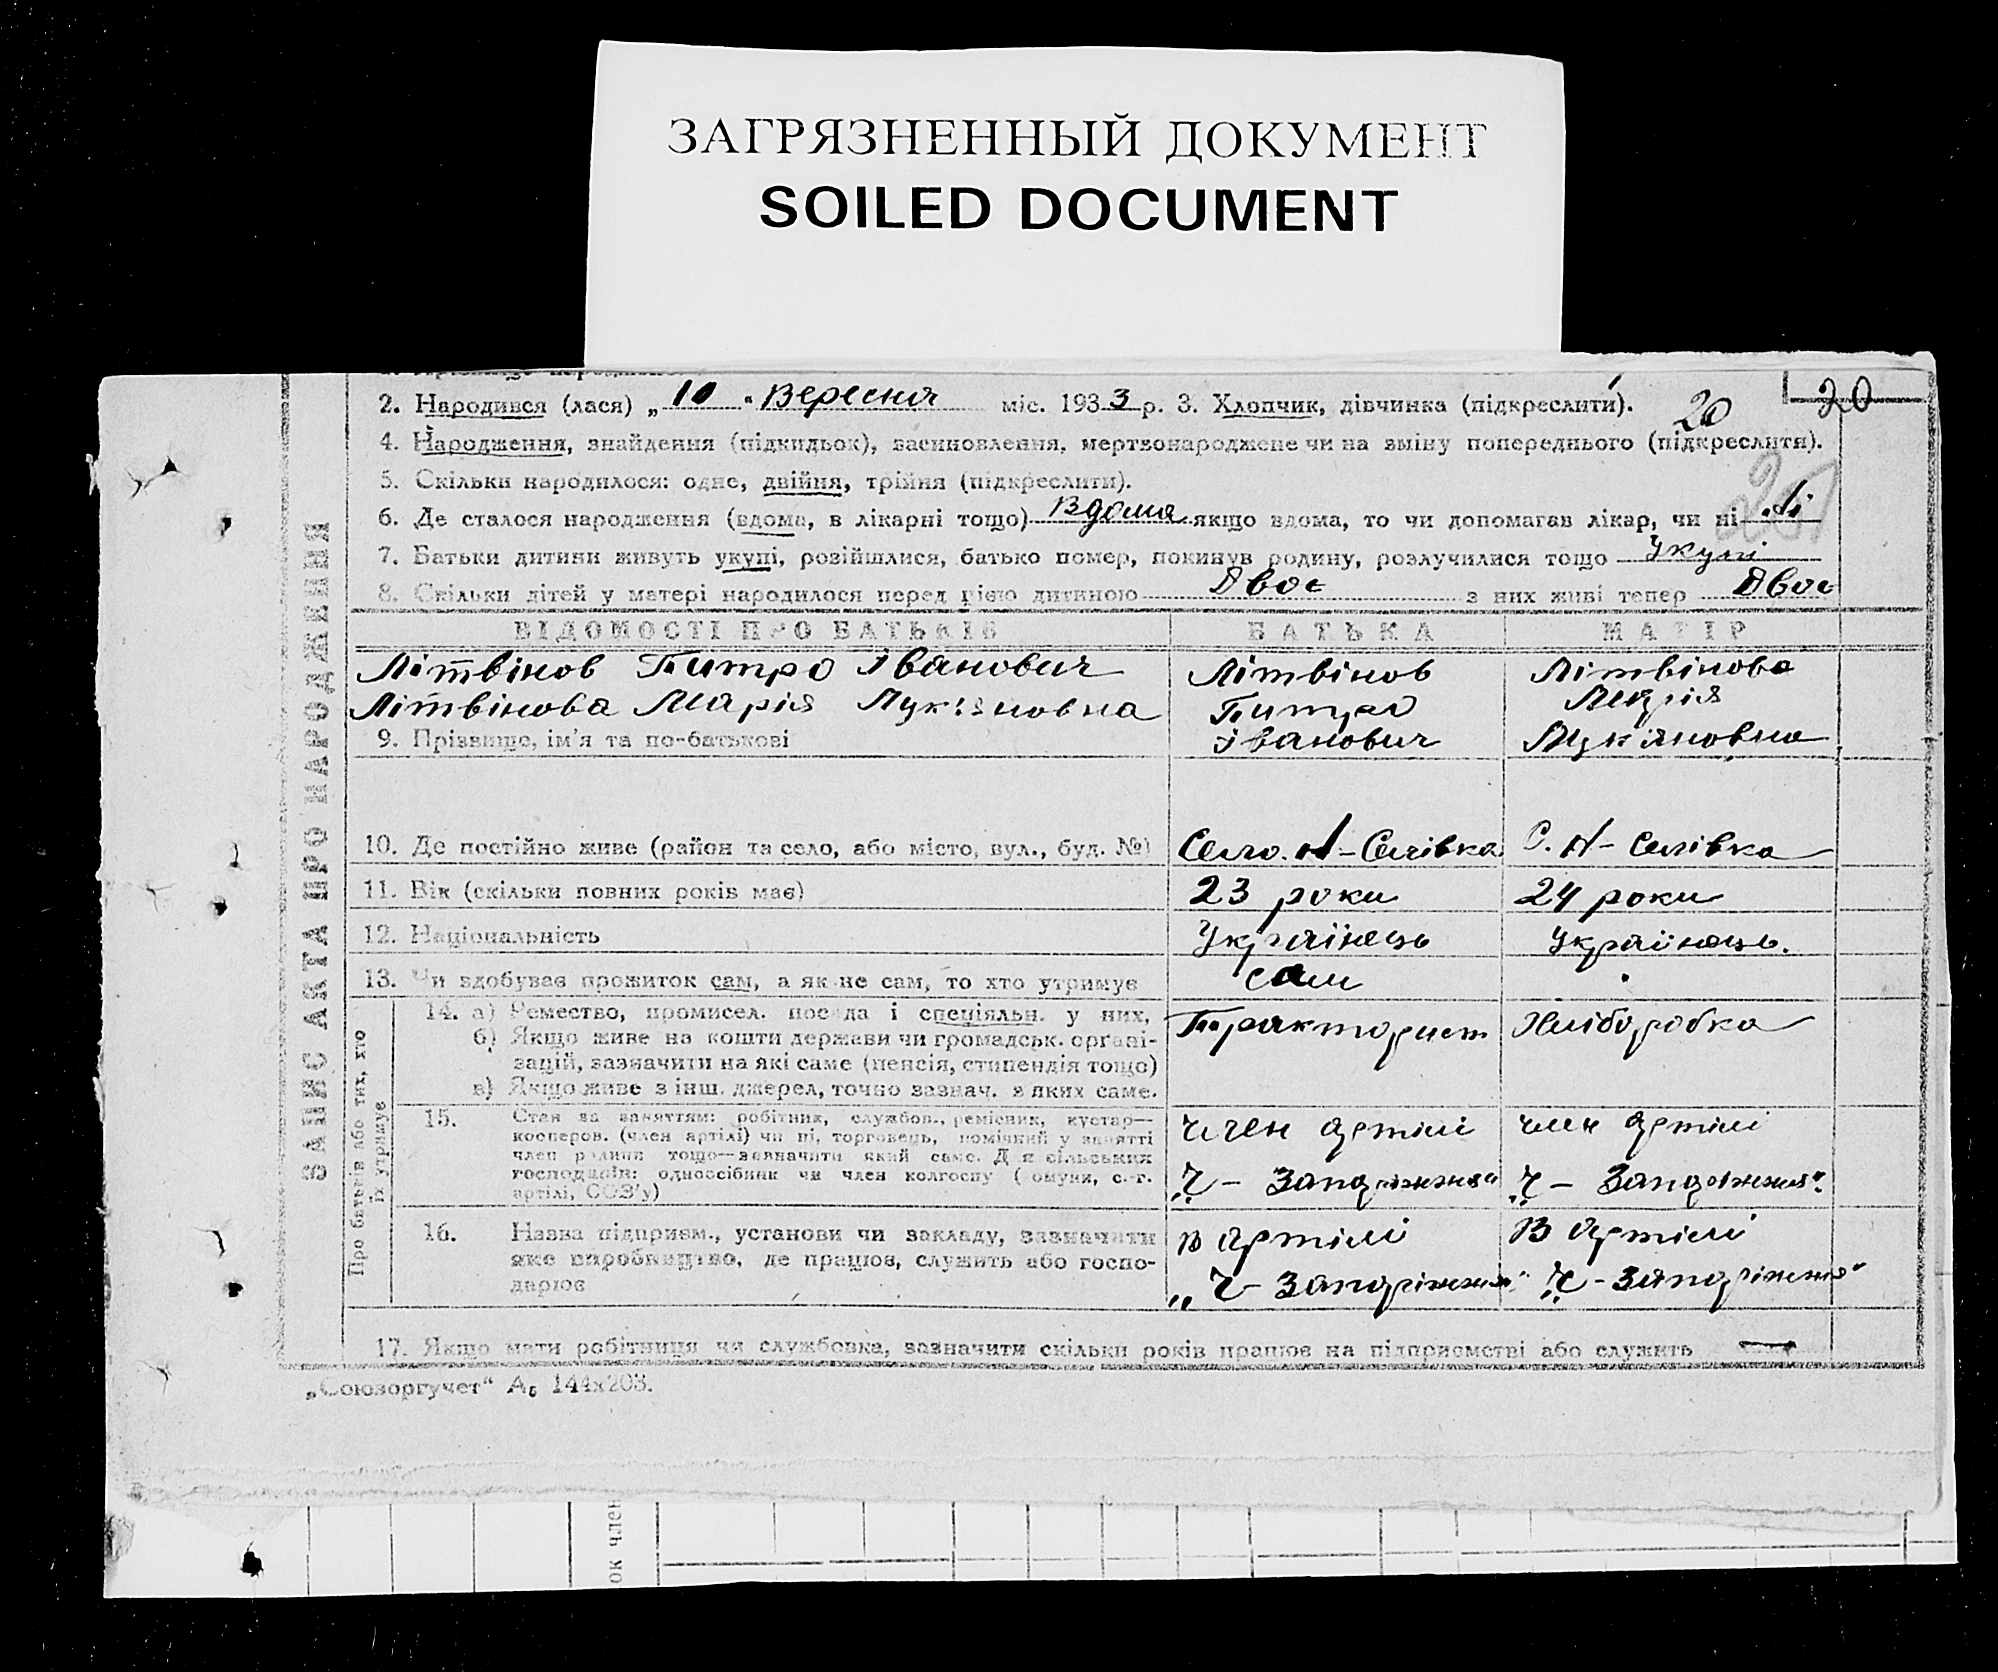 ЗАГРЯЗНЕННЫЙ ДОКУМЕНТ
SOILED DOCUMENT
2. Народився (лася) „ 10 " Вересня міс. 1933 р. 3. Хлопчик, дівчинка (підкреслити). 20 20
4. Народження, знайдення (підкидьок), засиновлення, мертвонароджене чи на зміну попереднього (підкреслити).
5. Скільки народилося: одне, двійня, трійня (підкреслити).
6. Де сталося народження (вдома, в лікарні тощо) Вдома якщо вдома, то чи допомагав лікар, чи ні Ні
7. Батьки дитини живуть укупі, розійшлися, батько помер, покинув родину, розлучилися тощо Укупі
8. Скільки дітей у матері народилося перед цією дитиною Двоє з них живі тепер Двоє
ЗАПИС АКТА ПРО НАРОДЖЕННЯ
ВІДОМОСТІ ПРО БАТЬКІВ БАТЬКА МАТІР
Літвінов Питро Іванович Літвінов Літвінова
Літвінова Марія Лукʼяновна Питро Марія
9. Прізвище, ім'я та по-батькові Іванович Лукʼяновна
10. Де постійно живе (район та село, або місто, вул., буд. №) Село. Н-Селівка С. Н-Селівка
11. Вік (скільки повних років має) 23 роки 24 роки
12. Національність Українець Українець.
13. Чи здобуває прожиток сам, а як не сам, то хто утримує сам
Про батьків або тих, хто
їх утримує
14. а) Ремество, промисел. посада і спеціяльн. у них, Тракторист Хліборобка
б) Якщо живе на кошти держави чи громадськ. органі-
зацій, зазначити на які саме (пенсія, стипендія тощо)
в) Якщо живе з інш. джерел, точно зазнач. з яких саме.
15. Стан за заняттям: робітник, службов., ремісник, кустар—
косперов. (член артілі) чи ні, торговець, помічний у занятті член артілі член артілі
член родини тощо—зазначити який саме. Для сільських
господарів: одноосібник чи член колгоспу (комуни, с.-г. „Ч – Запоріжжя" „Ч – Запоріжжя".
артілі, СОЗ'у)
16. Назва підприєм., установи чи закладу, зазначити в артілі В артілі
яке виробництво, де працює, служить або госпо-
дарює „Ч – Запоріжжя" „Ч – Запоріжжя"
17. Якщо мати робітниця чи службовка, зазначити скільки років працює на підприємстві або служить —
„Союзоргучет" А₅ 144х203.
ок член